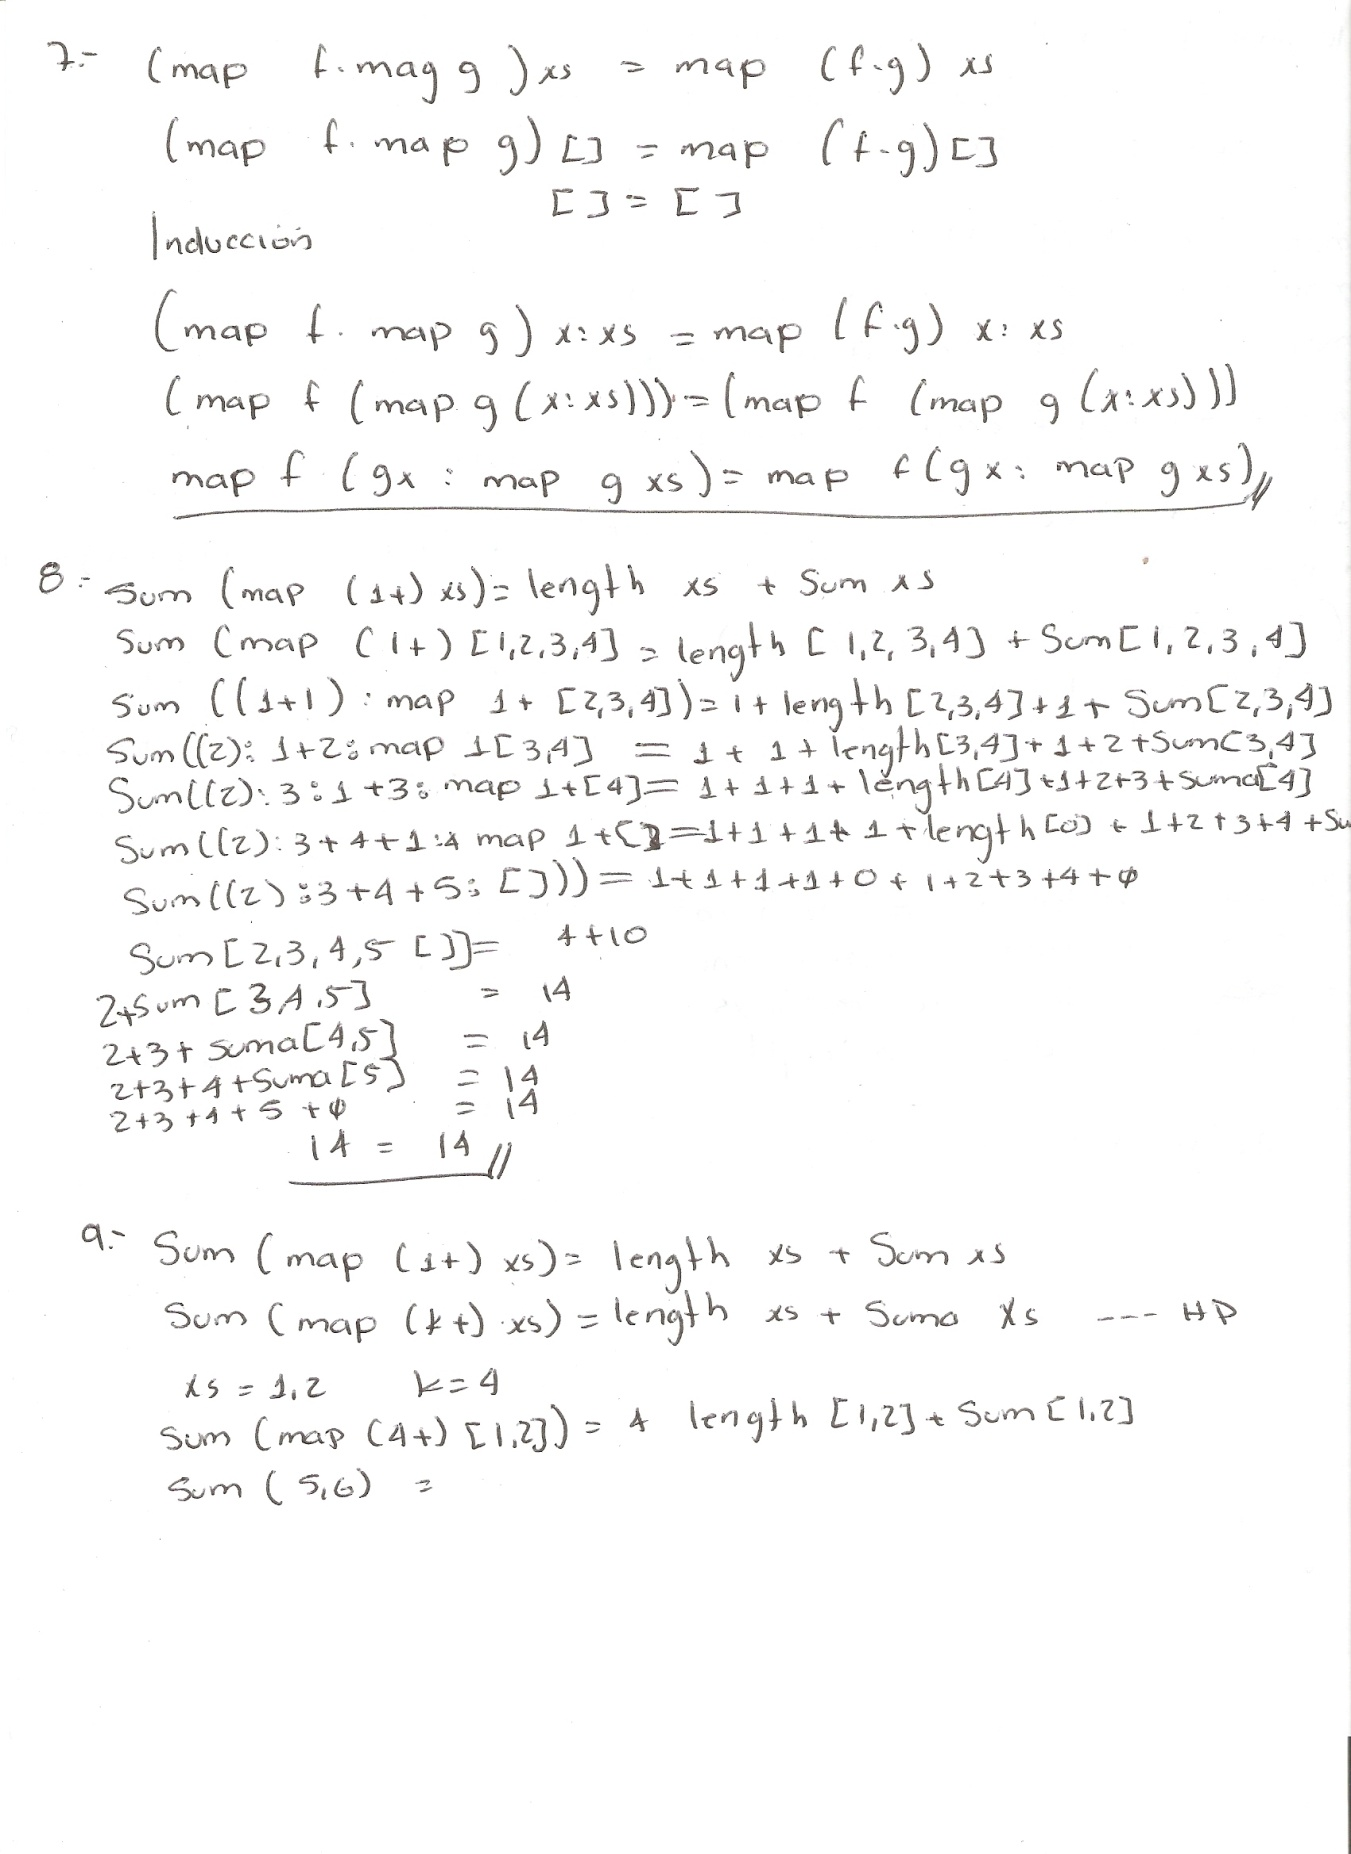 7.- (map f.mag g) xs = map (f.g) xs
(map f. map g) [] = map (f.g) []
[] = []
Inducción
(map f. map g) x:xs = map (f.g) x:xs
(map f (map g (x:xs))) = (map f (map g (x:xs)))
map f (gx : map g xs) = map f (gx: map g xs)//
8.- Sum (map (1+) xs) = length xs + Sum xs
Sum (map (1+) [1,2,3,4] = length [1,2,3,4] + Sum[1,2,3,4]
Sum ((1+1) : map 1+ [2,3,4]) = 1+ length [2,3,4]+1+ Sum[2,3,4]
Sum((2): 1+2: map 1[3,4] = 1+1+length[3,4]+1+2+Sum[3,4]
Sum((2):3:1+3: map 1+[4] = 1+1+1+length[4]+1+2+3+suma[4]
Sum((2):3+4+1:4 map 1+[] =1+1+1+1+length[0] + 1+2+3+4+Su
Sum((2):3+4+5: [])) = 1+1+1+1+0+1+2+3+4+0
Sum[2,3,4,5 []] = 4+10
2+Sum[3,4,5] = 14
2+3+suma[4,5] = 14
2+3+4+Suma[5] = 14
2+3+4+5+0 = 14
14 = 14//
9.- Sum (map (1+) xs) = length xs + Sum xs
Sum (map (k+) xs) = length xs + Suma Xs --- HP
xs = 1,2 k=4
Sum (map (4+) [1,2]) = 4 length [1,2] + Sum[1,2]
Sum (5,6) =